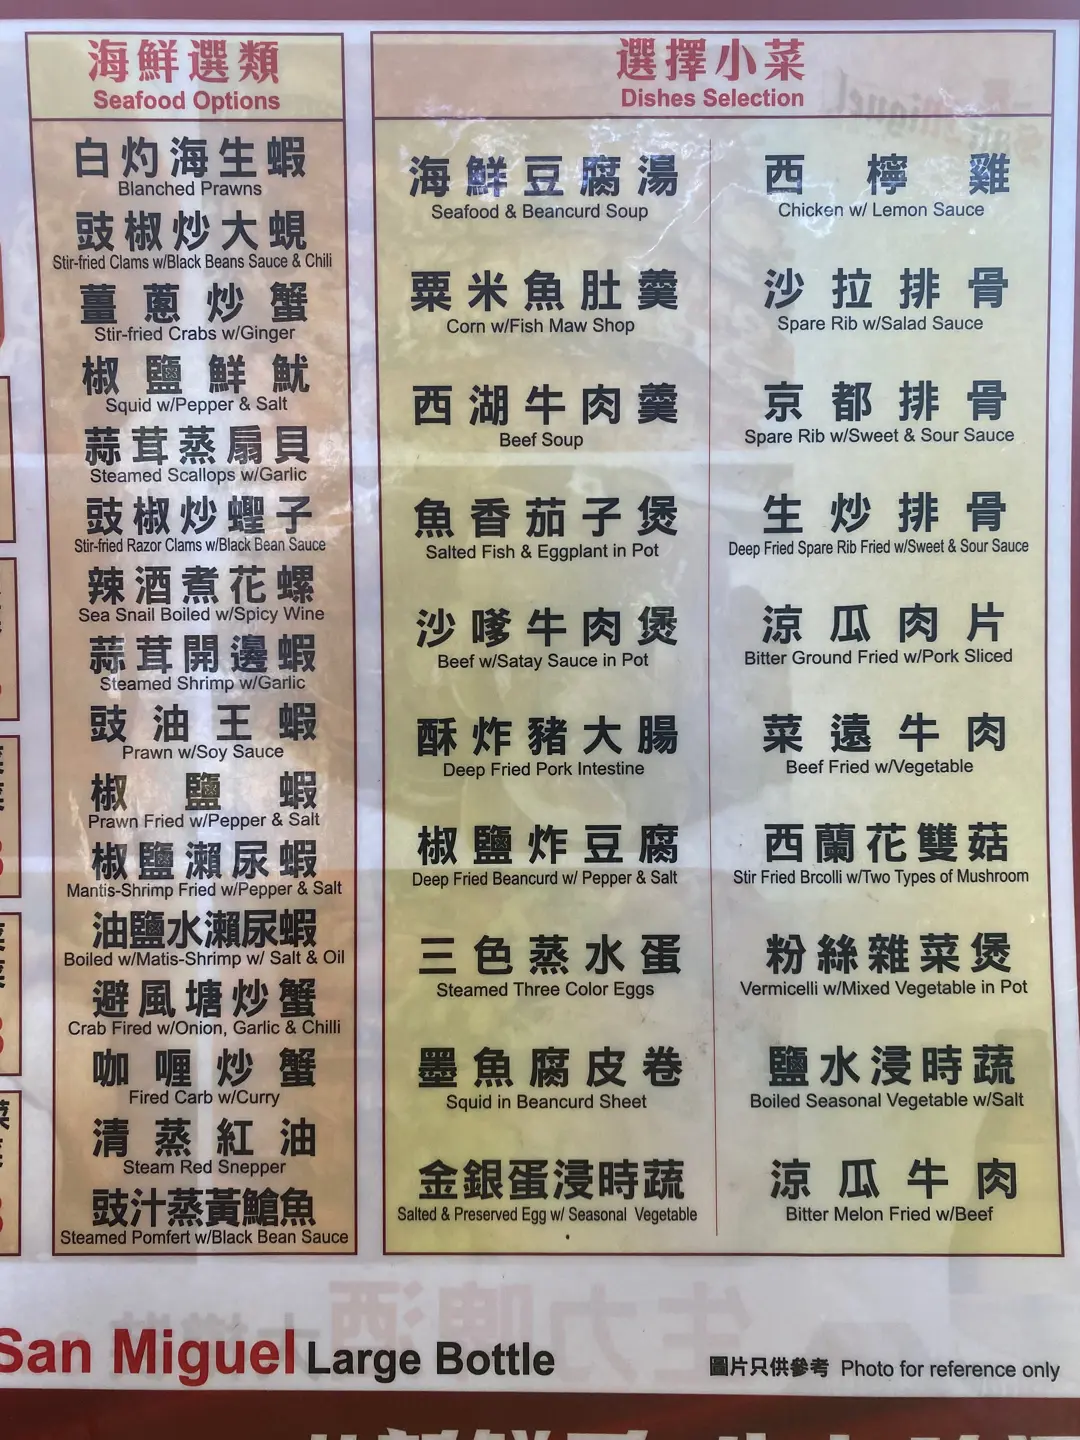 海鮮選類
Seafood Options
白灼海生蝦
Blanched Prawns
豉椒炒大蜆
Stir-fried Clams w/Black Beans Sauce & Chili
薑蔥炒蟹
Stir-fried Crabs w/Ginger
椒鹽鮮魷
Squid w/Pepper & Salt
蒜茸蒸扇貝
Steamed Scallops w/Garlic
豉椒炒蟶子
Stir-fried Razor Clams w/Black Bean Sauce
辣酒煮花螺
Sea Snail Boiled w/Spicy Wine
蒜茸開邊蝦
Steamed Shrimp w/Garlic
豉油王蝦
Prawn w/Soy Sauce
椒鹽蝦
Prawn Fried w/Pepper & Salt
椒鹽瀨尿蝦
Mantis-Shrimp Fried w/Pepper & Salt
油鹽水瀨尿蝦
Boiled w/Matis-Shrimp w/ Salt & Oil
避風塘炒蟹
Crab Fired w/Onion, Garlic & Chilli
咖喱炒蟹
Fired Carb w/Curry
清蒸紅油
Steam Red Snepper
豉汁蒸黃鰽魚
Steamed Pomfert w/Black Bean Sauce
選擇小菜
Dishes Selection
海鮮豆腐湯
Seafood & Beancurd Soup
粟米魚肚羹
Corn w/Fish Maw Shop
西湖牛肉羹
Beef Soup
魚香茄子煲
Salted Fish & Eggplant in Pot
沙嗲牛肉煲
Beef w/Satay Sauce in Pot
酥炸豬大腸
Deep Fried Pork Intestine
椒鹽炸豆腐
Deep Fried Beancurd w/ Pepper & Salt
三色蒸水蛋
Steamed Three Color Eggs
墨魚腐皮卷
Squid in Beancurd Sheet
金銀蛋浸時蔬
Salted & Preserved Egg w/ Seasonal Vegetable
西檸雞
Chicken w/ Lemon Sauce
沙拉排骨
Spare Rib w/Salad Sauce
京都排骨
Spare Rib w/Sweet & Sour Sauce
生炒排骨
Deep Fried Spare Rib Fried w/Sweet & Sour Sauce
涼瓜肉片
Bitter Ground Fried w/Pork Sliced
菜遠牛肉
Beef Fried w/Vegetable
西蘭花雙菇
Stir Fried Brcolli w/Two Types of Mushroom
粉絲雜菜煲
Vermicelli w/Mixed Vegetable in Pot
鹽水浸時蔬
Boiled Seasonal Vegetable w/Salt
涼瓜牛肉
Bitter Melon Fried w/Beef
San Miguel Large Bottle
圖片只供參考 Photo for reference only